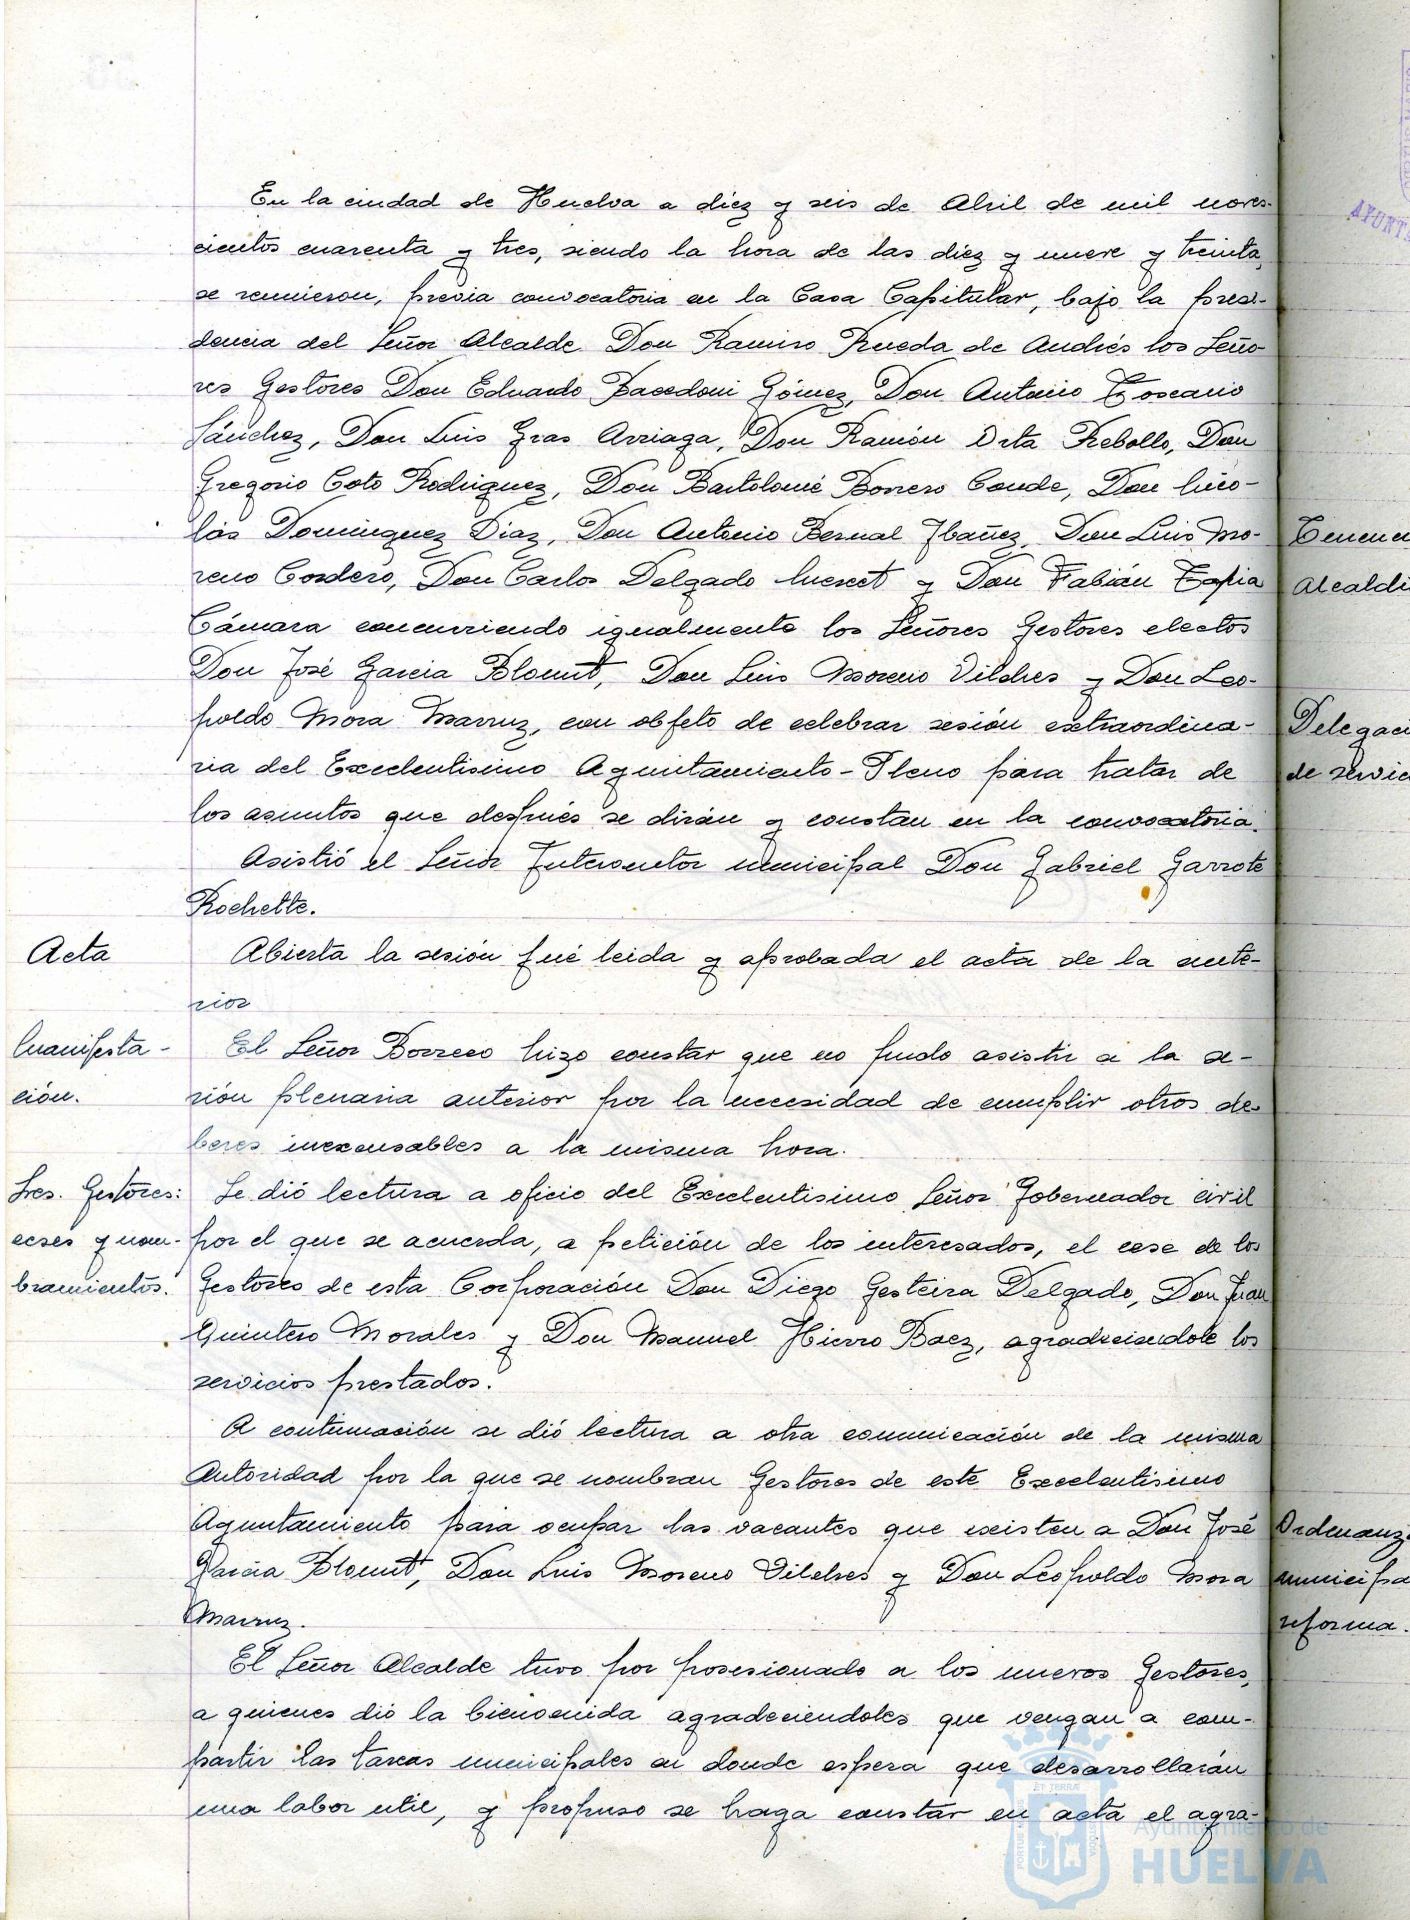 En la ciudad de Huelva a diéz y seis de Abril de mil noves-
cientos cuarenta y tres, siendo la hora de las diéz y nueve y treinta,
se reunieron, previa convocatoria en la Casa Capitular, bajo la presi-
dencia del Señor Alcalde Don Ramiro Rueda de Andrés los Seño-
res Gestores Don Eduardo Bacedoni Gómez, Don Antonio Toscano
Sánchez, Don Luis Gras Arriaga, Don Ramón Orta Rebollo, Don
Gregorio Coto Rodriguez, Don Bartolomé Borrero Conde, Don Nico-
lás Dominguez Diaz, Don Antonio Bernal Ibañez, Don Luis Mo-
reno Cordero, Don Carlos Delgado y Don Fabián Tapia
Cámara concurriendo igualmente los Señores Gestores electos
Don José Garcia Blount, Don Luis Moreno Vilches y Don Leo-
poldo Mora Marruz, con objeto de celebrar sesión extraordina-
ria del Excelentisimo Ayuntamiento-Pleno para tratar de
los asuntos que después se dirán y constan en la convocatoria.
Asistió el Señor Interventor municipal Don Gabriel Garrote
Rochette.
Acta
Abierta la sesión fué leida y aprobada el acta de la ante-
rior
Manifesta-
ción.
El Señor Borrero hizo constar que no pudo asistir a la se-
sión plenaria anterior por la necesidad de cumplir otros de-
beres inexcusables a la misma hora.
Sres. Gestores:
ceses y nom-
bramientos.
Se dió lectura a oficio del Excelentisimo Señor Gobernador civil
por el que se acuerda, a petición de los interesados, el cese de los
Gestores de esta Corporación Don Diego Gesteira Delgado, Don Juan
Quintero Morales y Don Manuel Hierro Baez, agradeciendole los
servicios prestados.
A continuación se dió lectura a otra comunicación de la misma
Autoridad por la que se nombran Gestores de este Excelentisimo
Ayuntamiento para ocupar las vacantes que existen a Don José
Garcia Blount, Don Luis Moreno Vilches y Don Leopoldo Mora
Marruz.
El Señor Alcalde tuvo por posesionado a los nuevos Gestores,
a quienes dió la bienvenida agradeciendoles que vengan a com-
partir las tareas municipales en donde espera que desarrollarán
una labor util, y propuso se haga constar en acta el agra-
Alcaldi
Delegaci
de servic
Ordenanz
municipa
reforma.
AYUNT
Ayuntamiento de
HUELVA